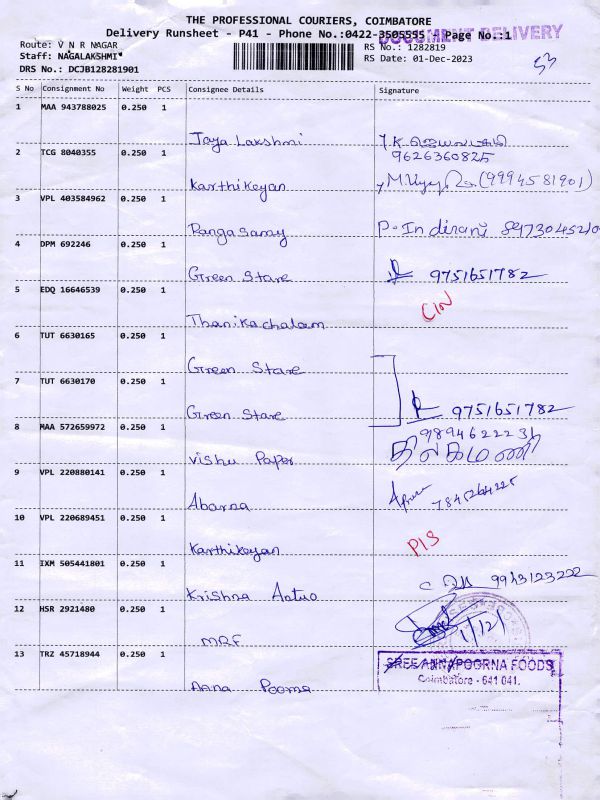 THE PROFESSIONAL COURIERS, COIMBATORE
Delivery Runsheet - P41 - Phone No.:0422-3505555 - Page No.:1
DOCUMENT DELIVERY
Route: V N R NAGAR
RS No.: 1282819
Staff: NAGALAKSHMI
RS Date: 01-Dec-2023
53
DRS No.: DCJB128281901
S No Consignment No Weight PCS Consignee Details Signature
1 MAA 943788025 0.250 1
Jaya Lakshmi
9626360825
2 TCG 8040355 0.250 1
Karthikeyan (9994581901)
3 VPL 403584962 0.250 1
Rangasamy P. Indirani
4 DPM 692246 0.250 1
Green Stare 9751651782
5 EDQ 16646539 0.250 1
CIN
Thanikachalam
6 TUT 6630165 0.250 1
Green Stare
7 TUT 6630170 0.250 1
Green Stare 9751651782
8 MAA 572659972 0.250 1
9894622231
Vishu Paper
9 VPL 220880141 0.250 1
Abarna
10 VPL 220689451 0.250 1
PIS
Karthikeyan
11 IXM 505441801 0.250 1
9943123222
Krishna Aatuo
12 HSR 2921480 0.250 1
1/12/
MRF
13 TRZ 45718944 0.250 1
SREE ANNAPOORNA FOODS
Coimbatore - 641 041.
Anna Poorna